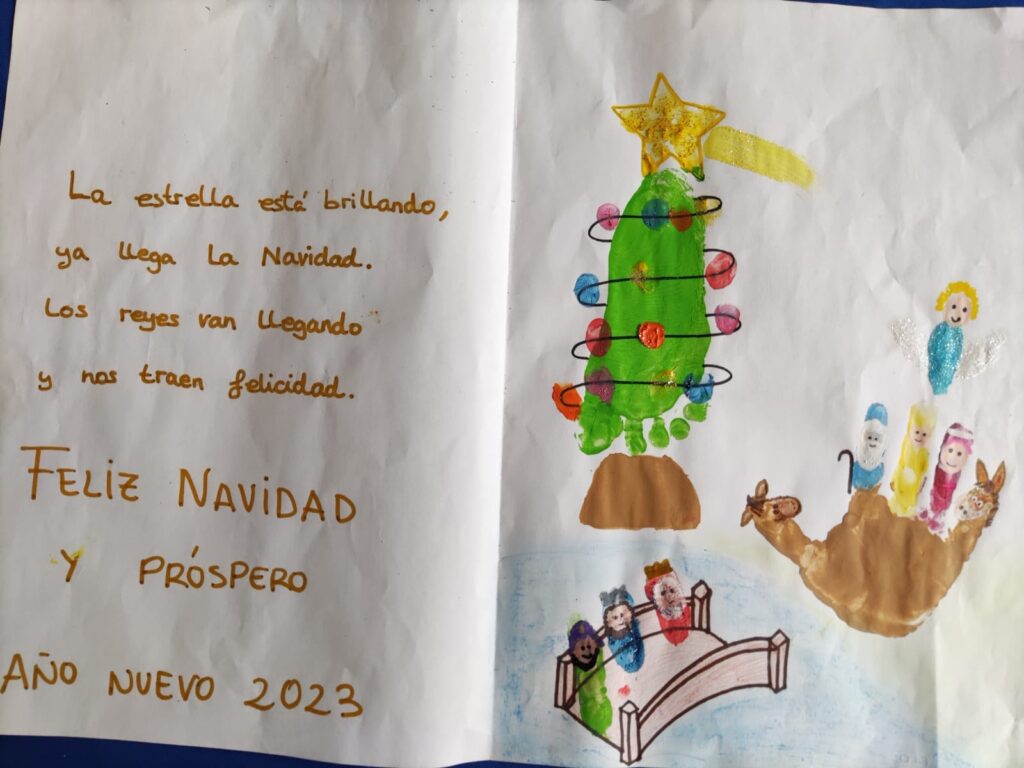 La estrella está brillando,
ya llega la Navidad.
Los reyes van llegando
y nos traen felicidad.
FELIZ NAVIDAD
Y PRÓSPERO
AÑO NUEVO 2023